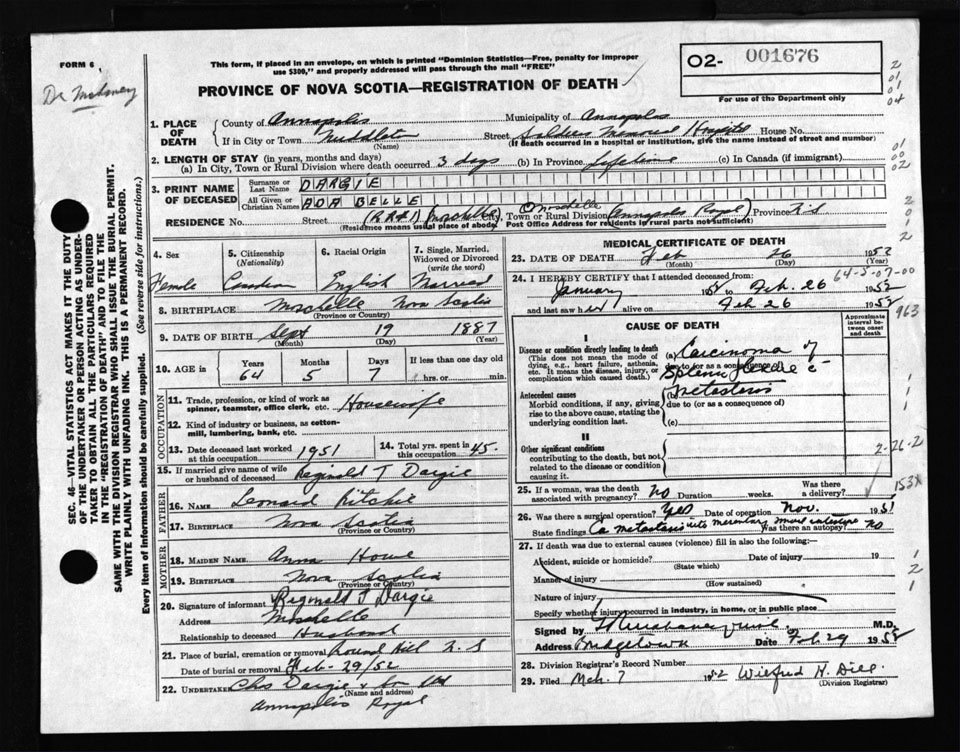 FORM 6
Dr Mahaney
This form, if placed in an envelope, on which is printed "Dominion Statistics—Free, penalty for improper
use $300," and properly addressed will pass through the mail "FREE"
PROVINCE OF NOVA SCOTIA—REGISTRATION OF DEATH
O2- 001676
For use of the Department only
2
01
01
04
1. PLACE OF DEATH
County of Annapolis Municipality of Annapolis
If in City or Town Middleton Street Soldiers Memorial Hospital House No.
(Name) (If death occurred in a hospital or institution, give the name instead of street and number)
2. LENGTH OF STAY (in years, months and days)
(a) In City, Town or Rural Division where death occurred 3 days (b) In Province Lifetime (c) In Canada (if immigrant)
01
00
02
3. PRINT NAME OF DECEASED
Surname or Last Name DARGIE
All Given or Christian Names ADA BELLE
RESIDENCE No. Street (R.R#1) (Moschelle) City, Town or Rural Division Moschelle (Annapolis Royal) Province N.S
(Residence means usual place of abode. Post Office Address for residents in rural parts not sufficient)
2
0
1
2
4. Sex 5. Citizenship (Nationality) 6. Racial Origin 7. Single, Married, Widowed or Divorced (write the word)
Female Canadian English Married
8. BIRTHPLACE Moschelle Nova Scotia
(Province or Country)
9. DATE OF BIRTH Sept 19 1887
(Month) (Day) (Year)
10. AGE in Years Months Days If less than one day old
64 5 7 hrs. or min.
OCCUPATION
11. Trade, profession, or kind of work as
spinner, teamster, office clerk, etc. Housewife
12. Kind of industry or business, as cotton-
mill, lumbering, bank, etc.
13. Date deceased last worked at this occupation 1951 14. Total yrs. spent in this occupation 45-
15. If married give name of wife
or husband of deceased Reginald T Dargie
FATHER
16. NAME Leonard Ritchie
17. BIRTHPLACE Nova Scotia
MOTHER
18. MAIDEN NAME Anna Howe
19. BIRTHPLACE Nova Scotia
(Province or Country)
20. Signature of informant Reginald T Dargie
Address Moschelle
Relationship to deceased Husband
21. Place of burial, cremation or removal Round Hill N.S
Date of burial or removal Feb-29/52
22. UNDERTAKER Chs Dargie & Son Ltd
(Name and address)
Annapolis Royal
MEDICAL CERTIFICATE OF DEATH
23. DATE OF DEATH Feb 26 1952
(Month) (Day) (Year)
64-5-07-00
24. I HEREBY CERTIFY that I attended deceased from:
January to Feb. 26 1952
and last saw h alive on Feb 26 1952
963
CAUSE OF DEATH
Approximate interval between onset and death
I
Disease or condition directly leading to death (a) Carcinoma of
(This does not mean the mode of dying, e.g., heart failure, asthenia, etc. It means the disease, injury, or complication which caused death.)
due to (or as a consequence of)
Antecedent causes (b) metastasis
Morbid conditions, if any, giving rise to the above cause, stating the underlying condition last.
due to (or as a consequence of)
(c)
1
1
1
II
Other significant conditions
contributing to the death, but not related to the disease or condition causing it.
2-26-2
25. If a woman, was the death associated with pregnancy? No Duration weeks. Was there a delivery?
153X
26. Was there a surgical operation? Yes Date of operation Nov. 1951
State findings Ca metastasis into mesentery Was there an autopsy? No
27. If death was due to external causes (violence) fill in also the following:—
Accident, suicide or homicide? Date of injury 19
(State which)
Manner of injury
(How sustained)
Nature of injury
Specify whether injury occurred in industry, in home, or in public place
1
2
1
Signed by M.D.
Address Bridgetown Date Feb. 29 1952
28. Division Registrar's Record Number
29. Filed Mch. 7 1952 Wilfred H. Dill
(Division Registrar)
SEC. 46—VITAL STATISTICS ACT MAKES IT THE DUTY
OF THE UNDERTAKER OR PERSON ACTING AS UNDER-
TAKER TO OBTAIN ALL THE PARTICULARS REQUIRED
IN THE "REGISTRATION OF DEATH" AND TO FILE THE
SAME WITH THE DIVISION REGISTRAR WHO SHALL ISSUE THE BURIAL PERMIT.
WRITE PLAINLY WITH UNFADING INK. THIS IS A PERMANENT RECORD.
Every item of information should be carefully supplied. (See reverse side for instructions.)